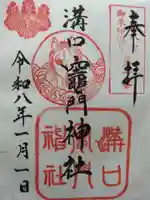 奉拝
溝口竈門神社
令和八年一月一日
溝口竈門神社